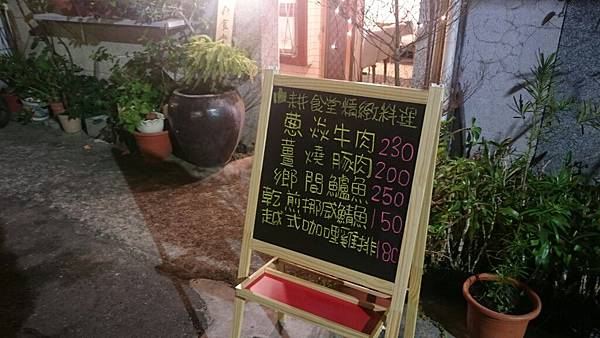 耕食堂精緻料理
蔥焱牛肉230
薑燒豚肉200
鄉間鱸魚250
乾煎挪威鯖魚150
越式咖哩雞排180